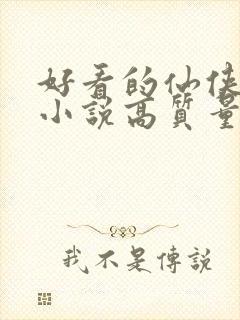 好看的仙俠
小說高質量
我不是傳說